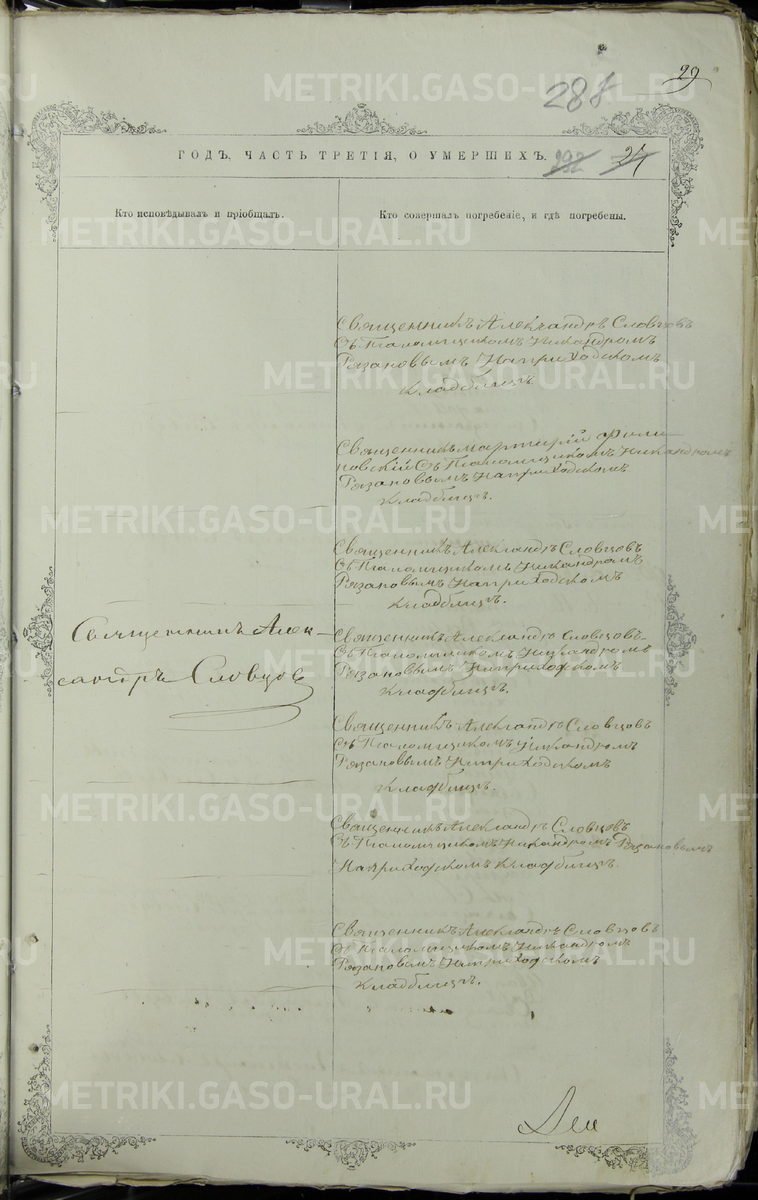 29
288
ГОДЪ, ЧАСТЬ ТРЕТІЯ, О УМЕРШИХЪ.
292
24
Кто исповѣдывалъ и пріобщалъ.
Кто совершалъ погребеніе, и гдѣ погребены.
Священникъ Александръ Словцовъ
Съ Псаломщикомъ Никандромъ
Рязановымъ Наприходском
кладбищѣ
Священникъ Мартирій
Съ Псаломщикомъ Никандромъ
Рязановымъ Наприходском
кладбищѣ.
Священникъ Александръ Словцовъ
Съ Псаломщикомъ Никандромъ
Рязановымъ Наприходскомъ
кладбищѣ.
Священникъ Алек-
сандръ Словцов
Священникъ Александръ Словцовъ
Съ Псаломщикомъ Никандромъ
Рязановымъ Наприходскомъ
кладбищѣ.
Священникъ Александръ Словцовъ
Съ Псаломщикомъ Никандромъ
Рязановымъ Наприходскомъ
кладбищѣ.
Священникъ Александръ Словцовъ
Съ Псаломщикомъ Никандромъ Рязановымъ
Наприходскомъ кладбищѣ.
Священникъ Александръ Словцовъ
Съ Псаломщикомъ Никандромъ
Рязановымъ Наприходскомъ
кладбищѣ.
METRIKI.GASO-URAL.RU